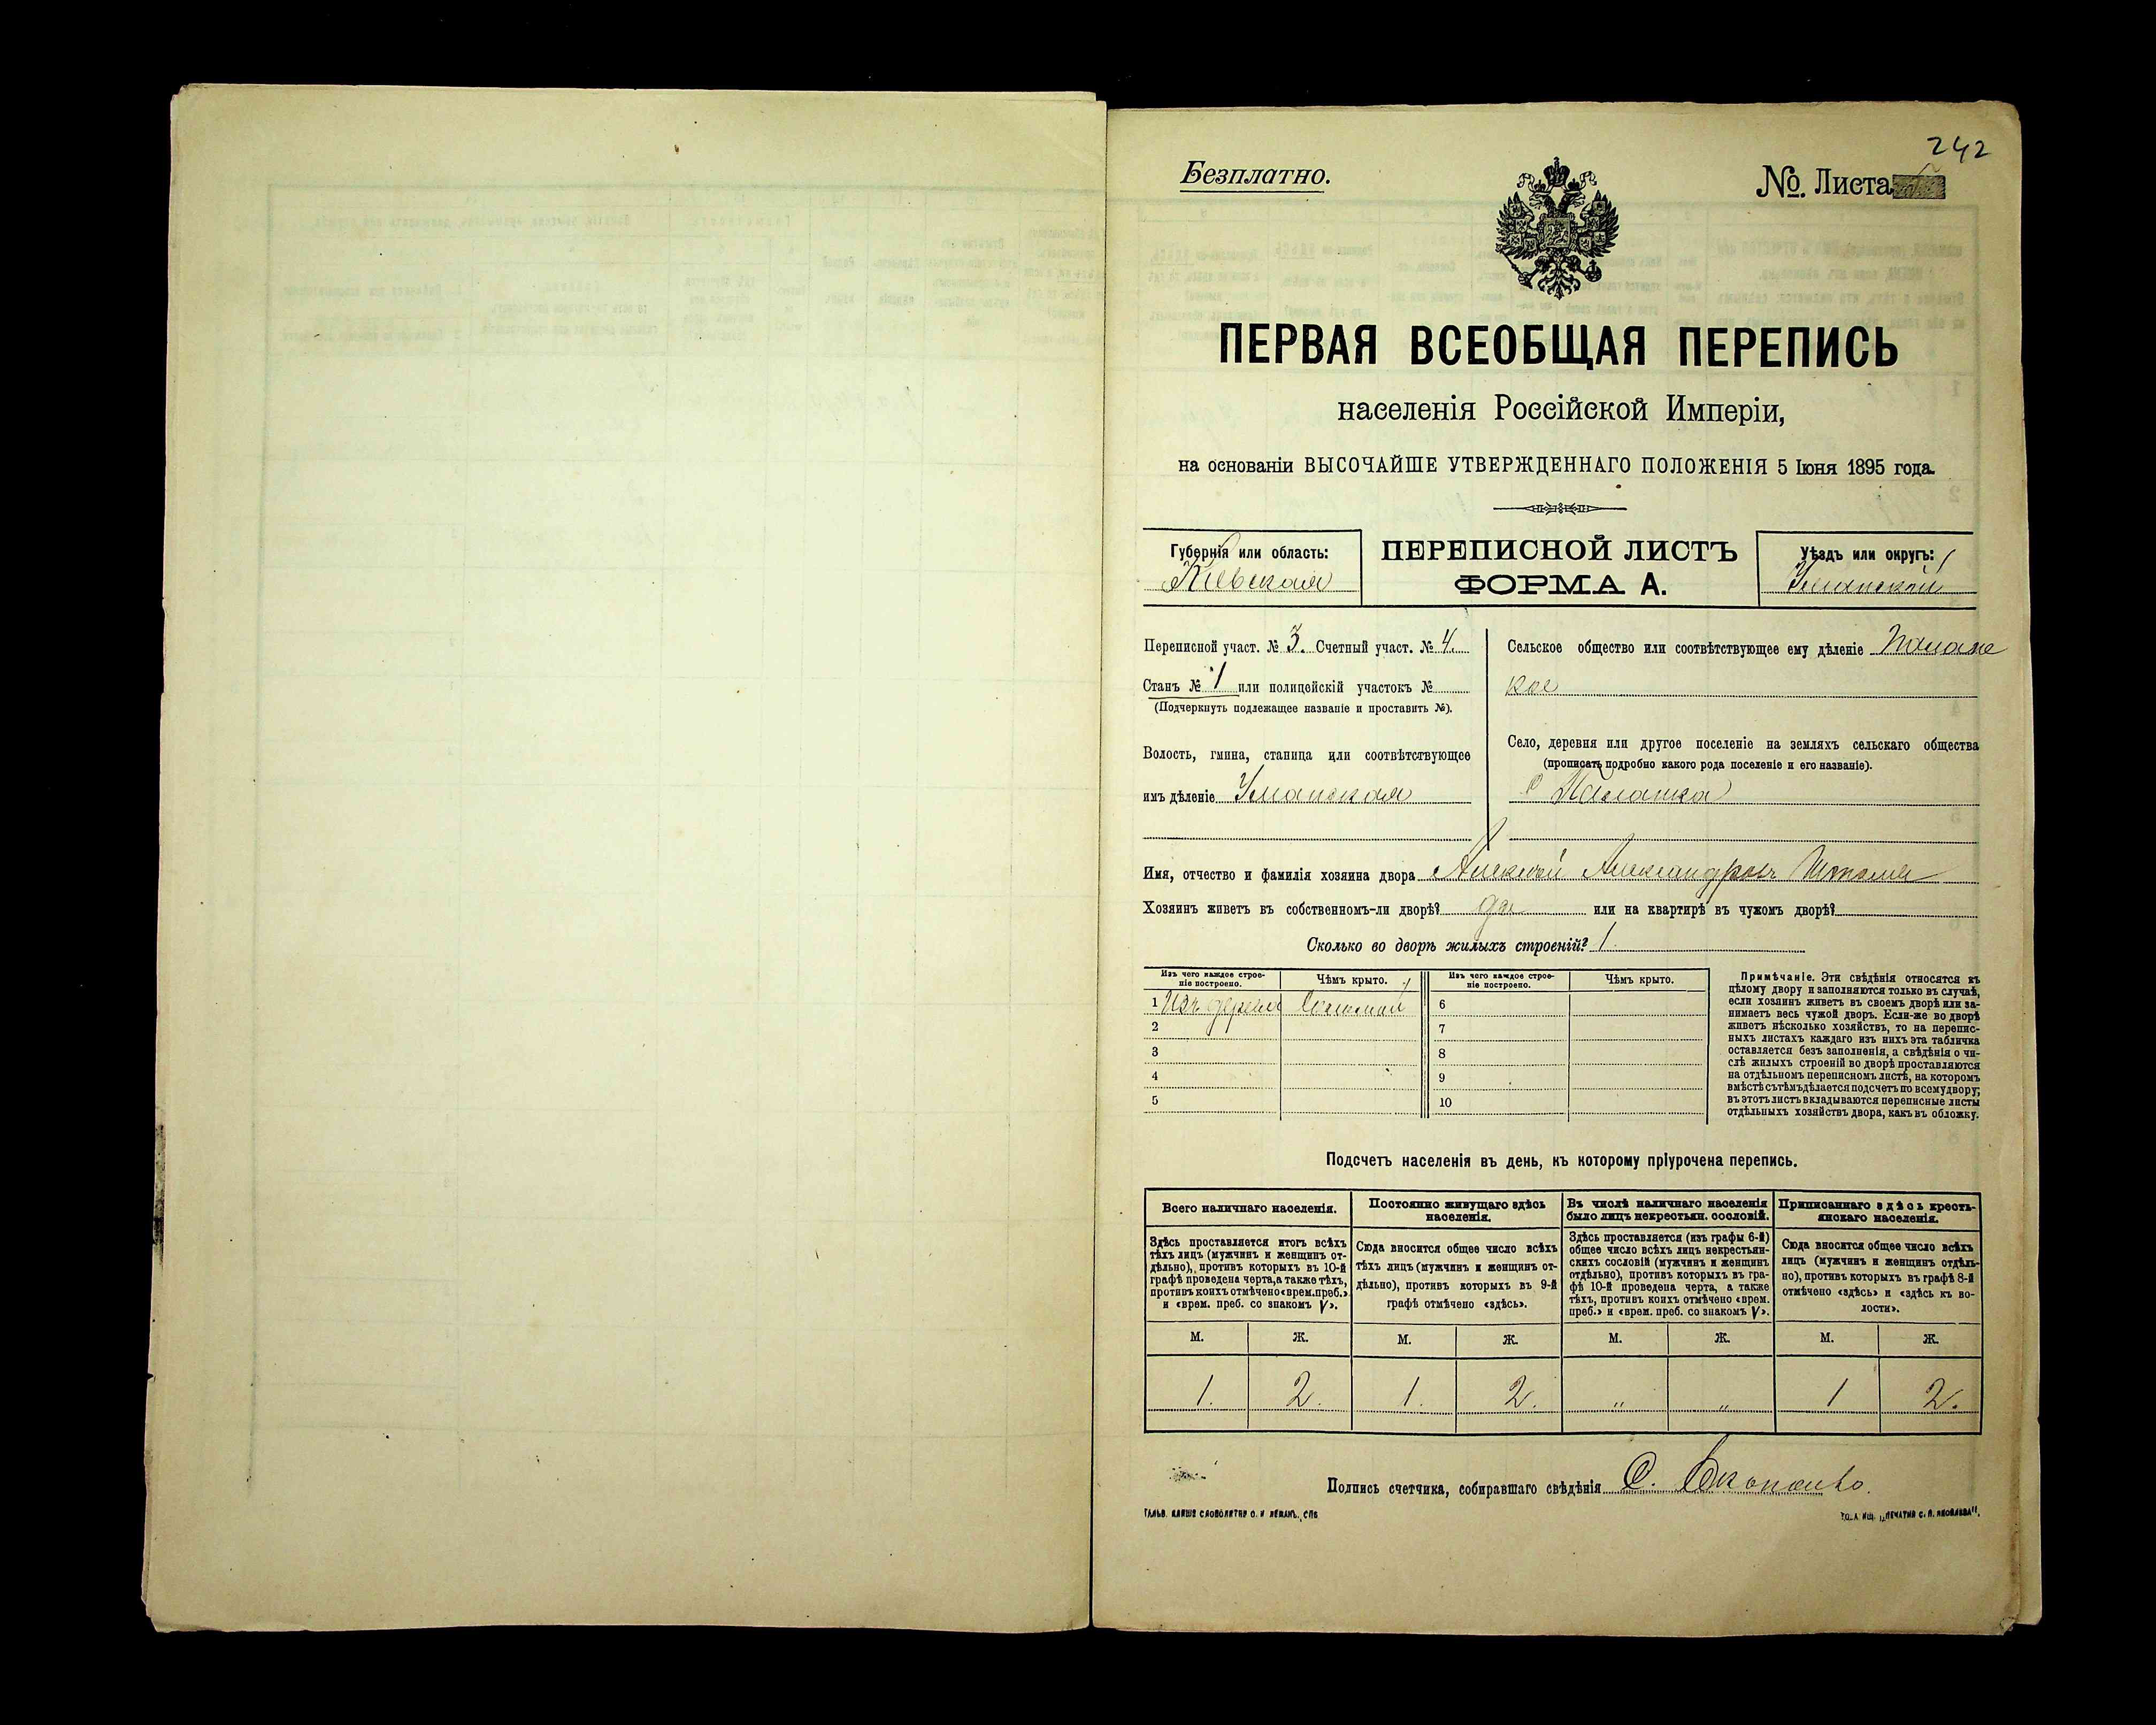 242
Безплатно.
№. Листа
ПЕРВАЯ ВСЕОБЩАЯ ПЕРЕПИСЬ
населенія Россійской Имперіи,
на основаніи ВЫСОЧАЙШЕ УТВЕРЖДЕННАГО ПОЛОЖЕНІЯ 5 Іюня 1895 года.
Губернія или область:
Кіевская
ПЕРЕПИСНОЙ ЛИСТЪ
ФОРМА А.
Уѣздъ или округъ:
Уманскій
Переписной участ. № 3. Счетный участ. № 4.
Станъ № 1 или полицейскій участокъ №
(Подчеркнуть подлежащее названіе и проставить №).
Волость, гмина, станица или соотвѣтствующее
имъ дѣленіе Уманская
Сельское общество или соотвѣтствующее ему дѣленіе Паланс
кое
Село, деревня или другое поселеніе на земляхъ сельскаго общества
(прописать подробно какого рода поселеніе и его названіе).
с Паланка
Имя, отчество и фамилія хозяина двора Алексѣй Александровъ
Хозяинъ живетъ въ собственномъ-ли дворѣ? да или на квартирѣ въ чужомъ дворѣ?
Сколько во дворѣ жилыхъ строеній? 1.
Изъ чего каждое строе-
ніе построено.
Чѣмъ крыто.
Изъ чего каждое строе-
ніе построено.
Чѣмъ крыто.
1 Изъ дерева Соломой 6
2 7
3 8
4 9
5 10
Примѣчаніе. Эти свѣдѣнія относятся къ
цѣлому двору и заполняются только въ случаѣ,
если хозяинъ живетъ въ своемъ дворѣ или за-
нимаетъ весь чужой дворъ. Если-же во дворѣ
живетъ нѣсколько хозяйствъ, то на перепис-
ныхъ листахъ каждаго изъ нихъ эта табличка
оставляется безъ заполненія, а свѣдѣнія о чи-
слѣ жилыхъ строеній во дворѣ проставляются
на отдѣльномъ переписномъ листѣ, на которомъ
вмѣстѣ съ тѣмъ дѣлается подсчетъ по всему двору;
въ этотъ листъ вкладываются переписные листы
отдѣльныхъ хозяйствъ двора, какъ въ обложку.
Подсчетъ населенія въ день, къ которому пріурочена перепись.
Всего наличнаго населенія.
Постоянно живущаго здѣсь
населенія.
Въ числѣ наличнаго населенія
было лицъ некрестьян. сословій.
Приписаннаго здѣсь кресть-
янскаго населенія.
Здѣсь проставляется итогъ всѣхъ
тѣхъ лицъ (мужчинъ и женщинъ от-
дѣльно), противъ которыхъ въ 10-й
графѣ проведена черта, а также тѣхъ,
противъ коихъ отмѣчено «врем. преб.»
и «врем. преб. со знакомъ V».
Сюда вносится общее число всѣхъ
тѣхъ лицъ (мужчинъ и женщинъ от-
дѣльно), противъ которыхъ въ 9-й
графѣ отмѣчено «здѣсь».
Здѣсь проставляется (изъ графы 6-й)
общее число всѣхъ лицъ некрестьян-
скихъ сословій (мужчинъ и женщинъ
отдѣльно), противъ которыхъ въ гра-
фѣ 10-й проведена черта, а также
тѣхъ, противъ коихъ отмѣчено «врем.
преб.» и «врем. преб. со знакомъ V».
Сюда вносится общее число всѣхъ
лицъ (мужчинъ и женщинъ отдѣль-
но), противъ которыхъ въ графѣ 8-й
отмѣчено «здѣсь» и «здѣсь къ во-
лости».
М. Ж. М. Ж. М. Ж. М. Ж.
1. 2. 1. 2. „ „ 1 2.
Подпись счетчика, собиравшаго свѣдѣнія С.